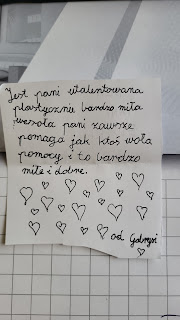 Jest pani utalentowana
plastycznie bardzo miła
wesoła pani zawsze
pomaga jak ktoś woła
pomocy i to bardzo
miłe i dobre.
od Gabrysi